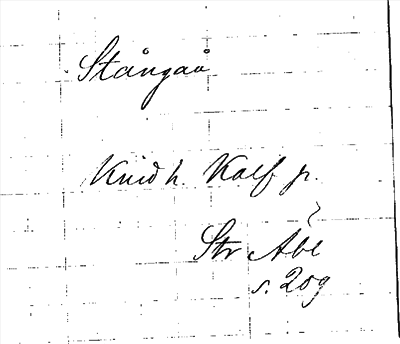 Stångaå
Knidh. Kalf p.
Str Åbe
s. 209